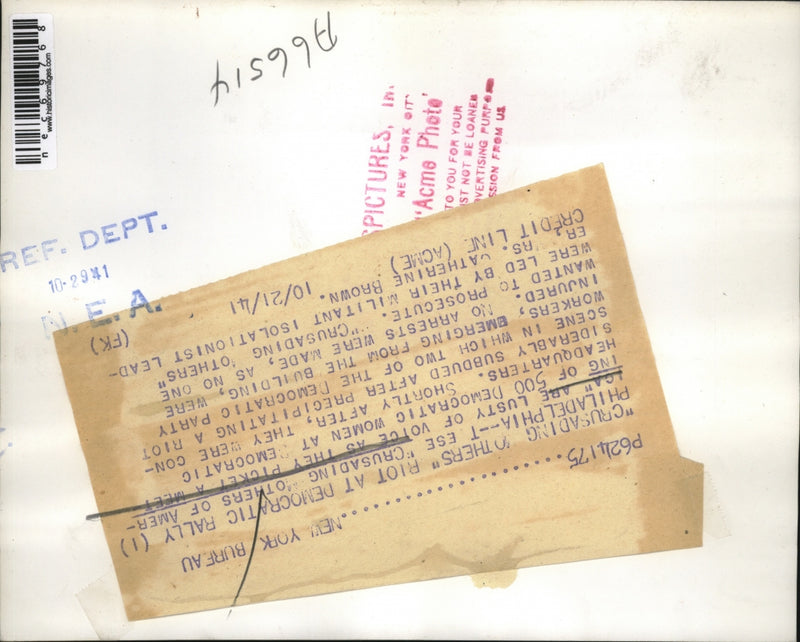 A66514
www.historicimages.com
nec69768
SPICTURES, In
NEW YORK CIT
"Acme Photo"
TO YOU FOR YOUR
ST NOT BE LOANED
VERTISING PURPOSE
SSION FROM US
REF. DEPT.
10-29 41
N. E. A.
P624175 .......... NEW YORK BUREAU
"CRUSADING MOTHERS" RIOT AT DEMOCRATIC RALLY (1)
PHILADELPHIA--T ESE LUSTY "CRUSADING MOTHERS OF AMER-
ICA" ARE VOICE AS THEY PICKET A MEET-
ING OF 500 DEMOCRATIC WOMEN AT DEMOCRATIC
HEADQUARTERS. SHORTLY AFTER, THEY WERE CON-
SIDERABLY SUBDUED AFTER PRECIPITATING A RIOT
SCENE IN WHICH TWO DEMOCRATIC PARTY
WORKERS, EMERGING FROM THE BUILDING, WERE
INJURED. NO ARRESTS WERE MADE, AS NO ONE
WANTED TO PROSECUTE. "CRUSADING MOTHERS"
WERE LED BY THEIR MILITANT ISOLATIONIST LEAD-
ER, RS. CATHERINE BROWN.
CREDIT LINE (ACME) 10/21/41 (FK)